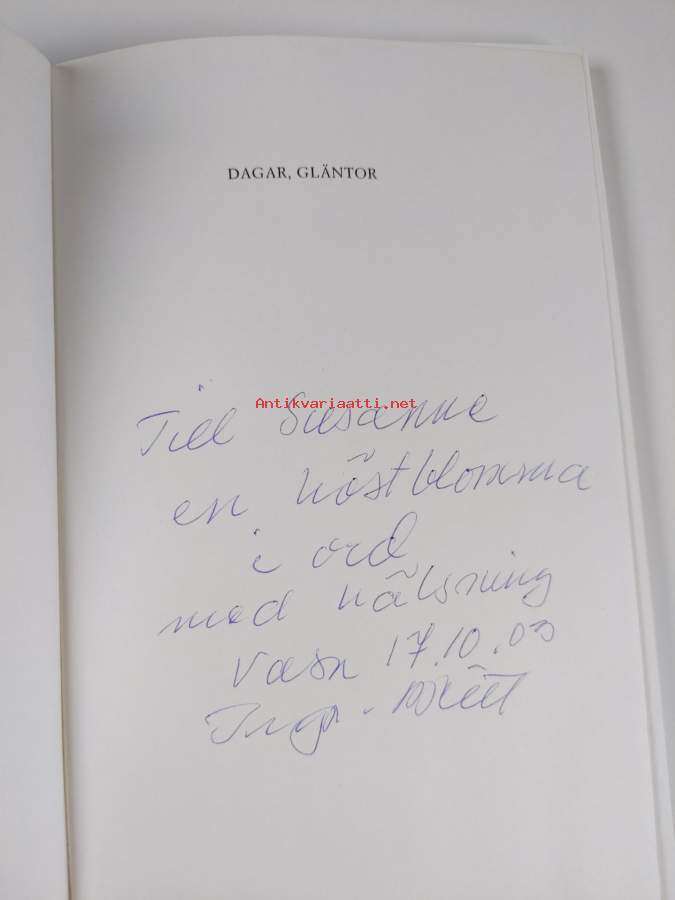 DAGAR, GLÄNTOR
Antikvariaatti.net
Till Susanne
en höstblomma
i ord
med hälsning
Vasa 17.10.03
Inga-Britt